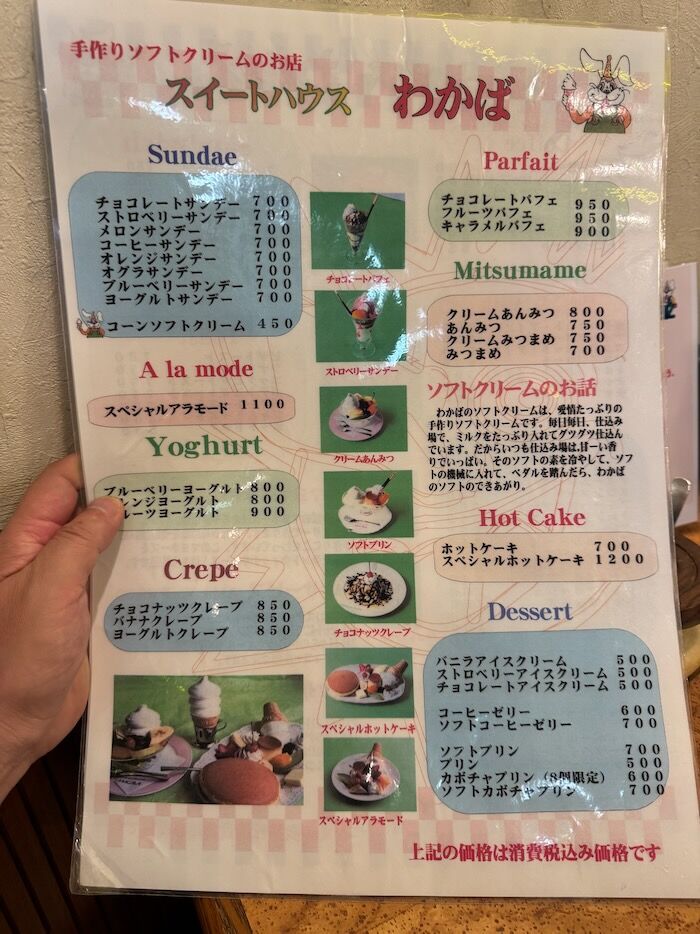 手作りソフトクリームのお店
スイートハウス わかば
Sundae
チョコレートサンデー 700
ストロベリーサンデー 700
メロンサンデー 700
コーヒーサンデー 700
オレンジサンデー 700
オグラサンデー 700
ブルーベリーサンデー 700
ヨーグルトサンデー 700
コーンソフトクリーム 450
A la mode
スペシャルアラモード 1100
Yoghurt
ブルーベリーヨーグルト 800
レンジヨーグルト 800
ルーツヨーグルト 900
Crepe
チョコナッツクレープ 850
バナナクレープ 850
ヨーグルトクレープ 850
チョコレートパフェ
ストロベリーサンデー
クリームあんみつ
ソフトプリン
チョコナッツクレープ
スペシャルホットケーキ
スペシャルアラモード
Parfait
チョコレートパフェ 950
フルーツパフェ 950
キャラメルパフェ 900
Mitsumame
クリームあんみつ 800
あんみつ 750
クリームみつまめ 750
みつまめ 700
ソフトクリームのお話
わかばのソフトクリームは、愛情たっぷりの
手作りソフトクリームです。毎日毎日、仕込み
場で、ミルクをたっぷり入れてグツグツ仕込ん
でいます。だからいつも仕込み場は、甘ーい香
りでいっぱい。そのソフトの素を冷やして、ソフ
トの機械に入れて、ペダルを踏んだら、わかば
のソフトのできあがり。
Hot Cake
ホットケーキ 700
スペシャルホットケーキ 1200
Dessert
バニラアイスクリーム 500
ストロベリーアイスクリーム 500
チョコレートアイスクリーム 500
コーヒーゼリー 600
ソフトコーヒーゼリー 700
ソフトプリン 700
プリン 500
カボチャプリン (8個限定) 600
ソフトカボチャプリン 700
上記の価格は消費税込み価格です